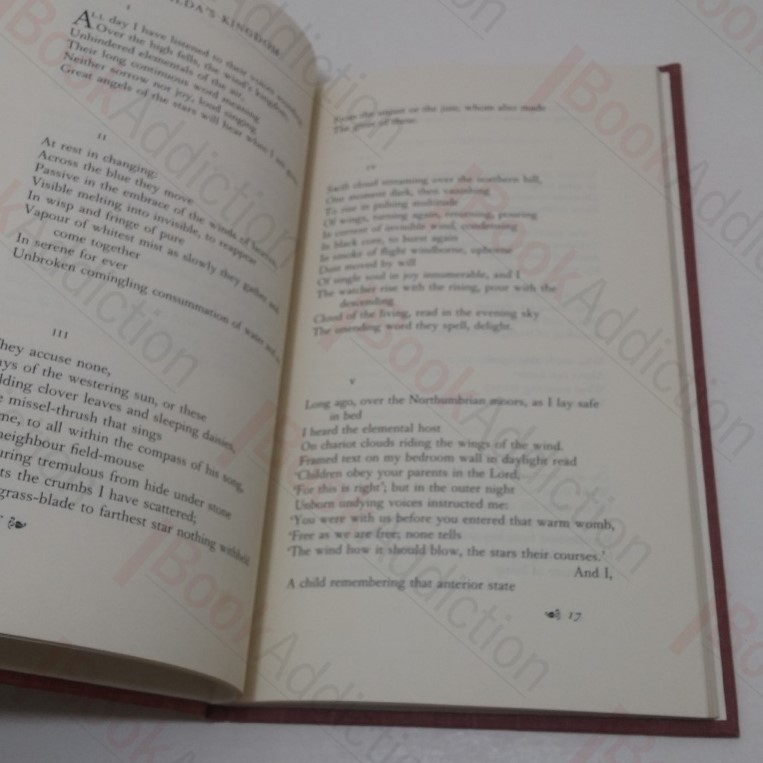 LDA'S KINGDOM
I
ALL day I have listened to their voices sounding
Over the high fells, the wind's kingdom,
Unhindered elementals of the air,
Their long continuous word meaning
Neither sorrow nor joy, loud singing
Great angels of the stars will hear when I am gone
II
At rest in changing:
Across the blue they move
Passive in the embrace of the winds of heaven,
Visible melting into invisible, to reappear
In wisp and fringe of pure
Vapour of whitest mist as slowly they gather and
come together
In serene for ever
Unbroken comingling consummation of water and
III
hey accuse none,
ys of the westering sun, or these
lding clover leaves and sleeping daisies,
missel-thrush that sings
me, to all within the compass of his song,
neighbour field-mouse
uring tremulous from hide under stone
ts the crumbs I have scattered;
grass-blade to farthest star nothing withheld
the unjust or the just, whom also made
The giver of these.
IV
Swift cloud streaming over the northern hill,
One moment dark, then vanishing
To rise in pulsing multitude
Of wings, turning again, returning, pouring
In current of invisible wind, condensing
In black core, to burst again
In smoke of flight windborne, upborne
Dust moved by will
Of single soul in joy innumerable, and I
The watcher rise with the rising, pour with the
descending
Cloud of the living, read in the evening sky
The unending word they spell, delight.
V
Long ago, over the Northumbrian moors, as I lay safe
in bed
I heard the elemental host
On chariot clouds riding the wings of the wind.
Framed text on my bedroom wall in daylight read
'Children obey your parents in the Lord,
'For this is right'; but in the outer night
Unborn undying voices instructed me:
'You were with us before you entered that warm womb,
'Free as we are free; none tells
'The wind how it should blow, the stars their courses.'
And I,
A child remembering that anterior state
17
BookAddiction